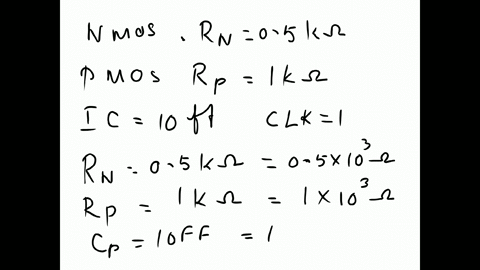 N mos . RN = 0.5 kΩ
PMOS RP = 1kΩ
IC = 10 ft CLK = 1
RN = 0.5 kΩ = 0.5×10³Ω
RP = 1kΩ = 1×10³Ω
CP = 10FF = 1